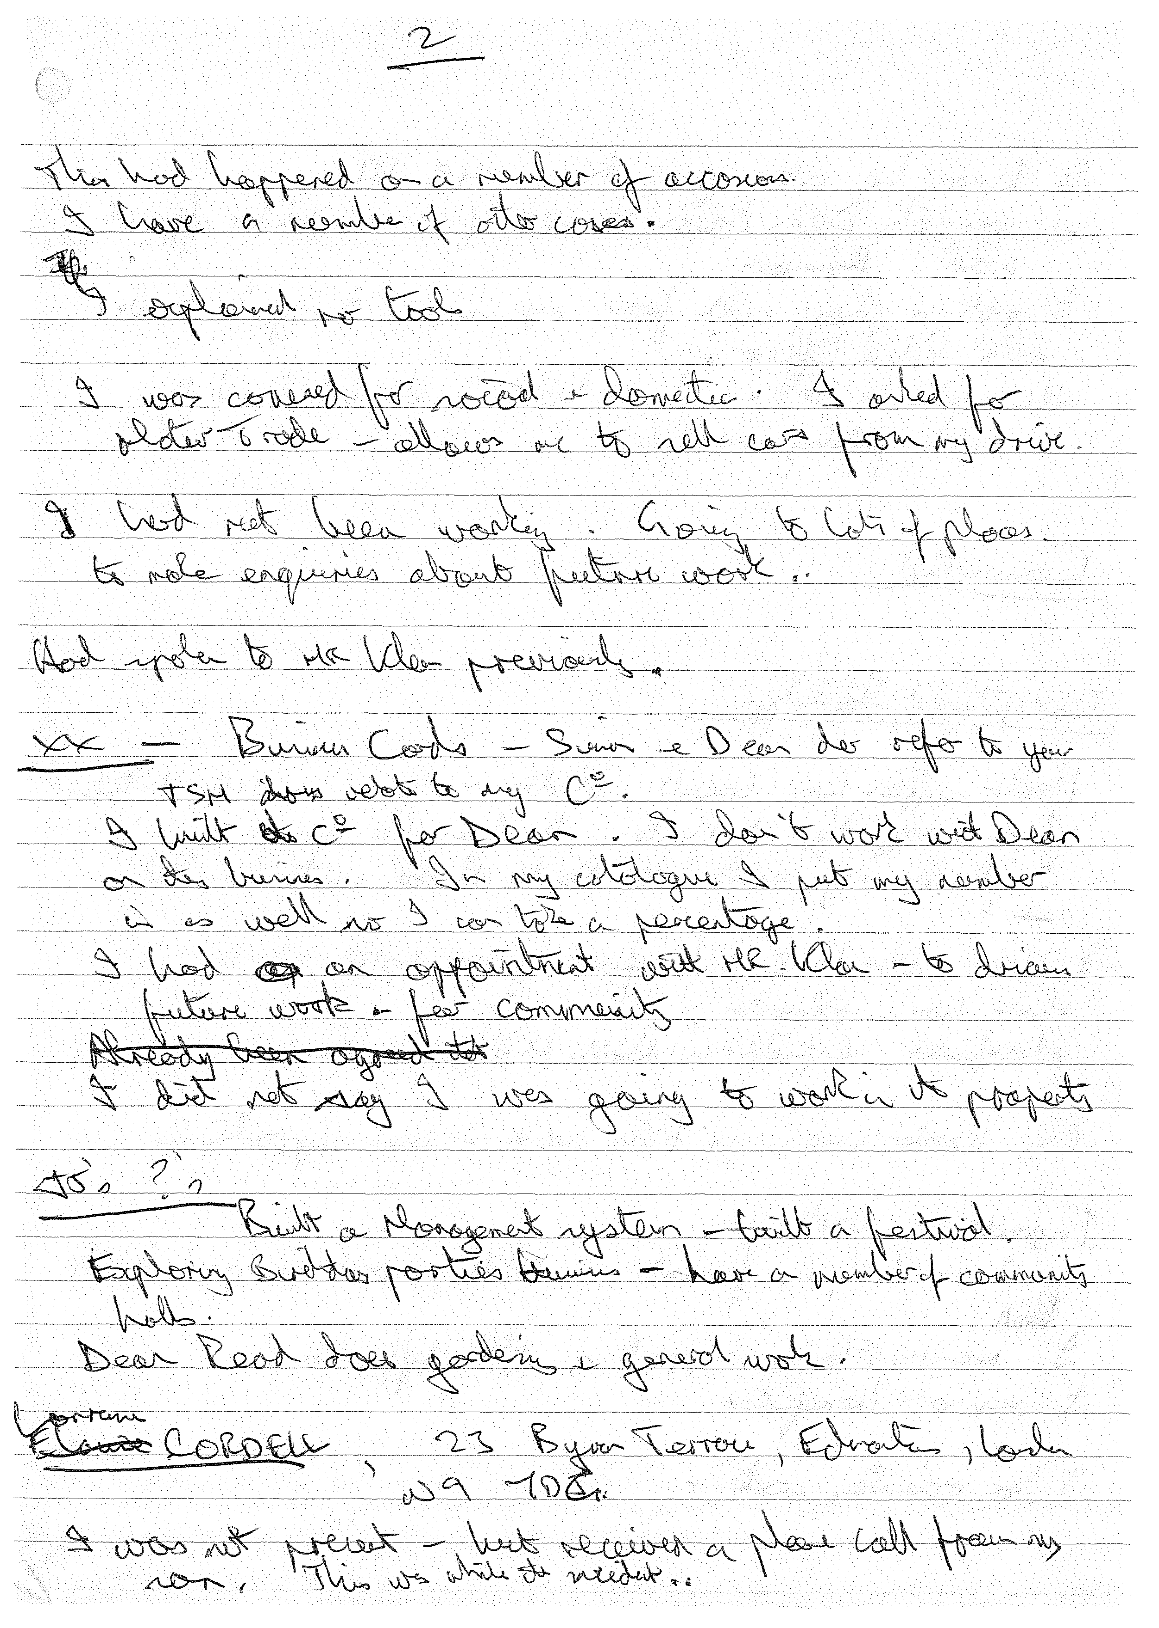 2
This had happened on a number of occasions.
I have a number of other cases.
I explained no tools
I was covered for social & domestic. I asked for
Motor Trade - allows me to sell cars from my drive.
I had not been working. Going to lots of places
to make enquiries about future work..
Had spoken to MR Khan previously.
XX - Business Cards - Simon & Dean does refer to you
TSM does relate to my Co.
I built the Co for Dean. I don't work with Dean
on this business. In my catologue I put my number
in as well so I can take a percentage.
I had an appointment with MR. Khan - to discuss
future work - for community
Already been agreed that
I did not say I was going to work in the property
J's ?'s
Built a Management system - built a festival.
Exploring Birthday parties business - have a number of community
halls.
Dean Read does gardening & general work.
Lorraine
Elaine CORDELL, 23 Byron Terrace, Edmonton, London
N9 7DG.
I was not present - but received a phone call from my
son. This was while the incident..